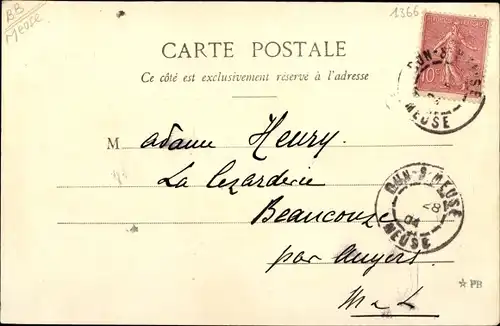 BB
Meuse
1366
CARTE POSTALE
Ce côté est exclusivement réservé à l'adresse
10c
DUN-S-MEUSE
MEUSE
Madame Henry
La Lezarderie
Beaucouzé
par Angers
M & L
DUN-S-MEUSE
04
MEUSE
☆ PB